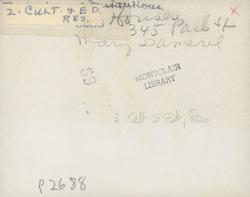 Institutions
2. CULT. & ED.
RES.
Houses
345 Park St
Mary Damerel
MONTCLAIR
LIBRARY
2 Cult & Ed, Res
p2688